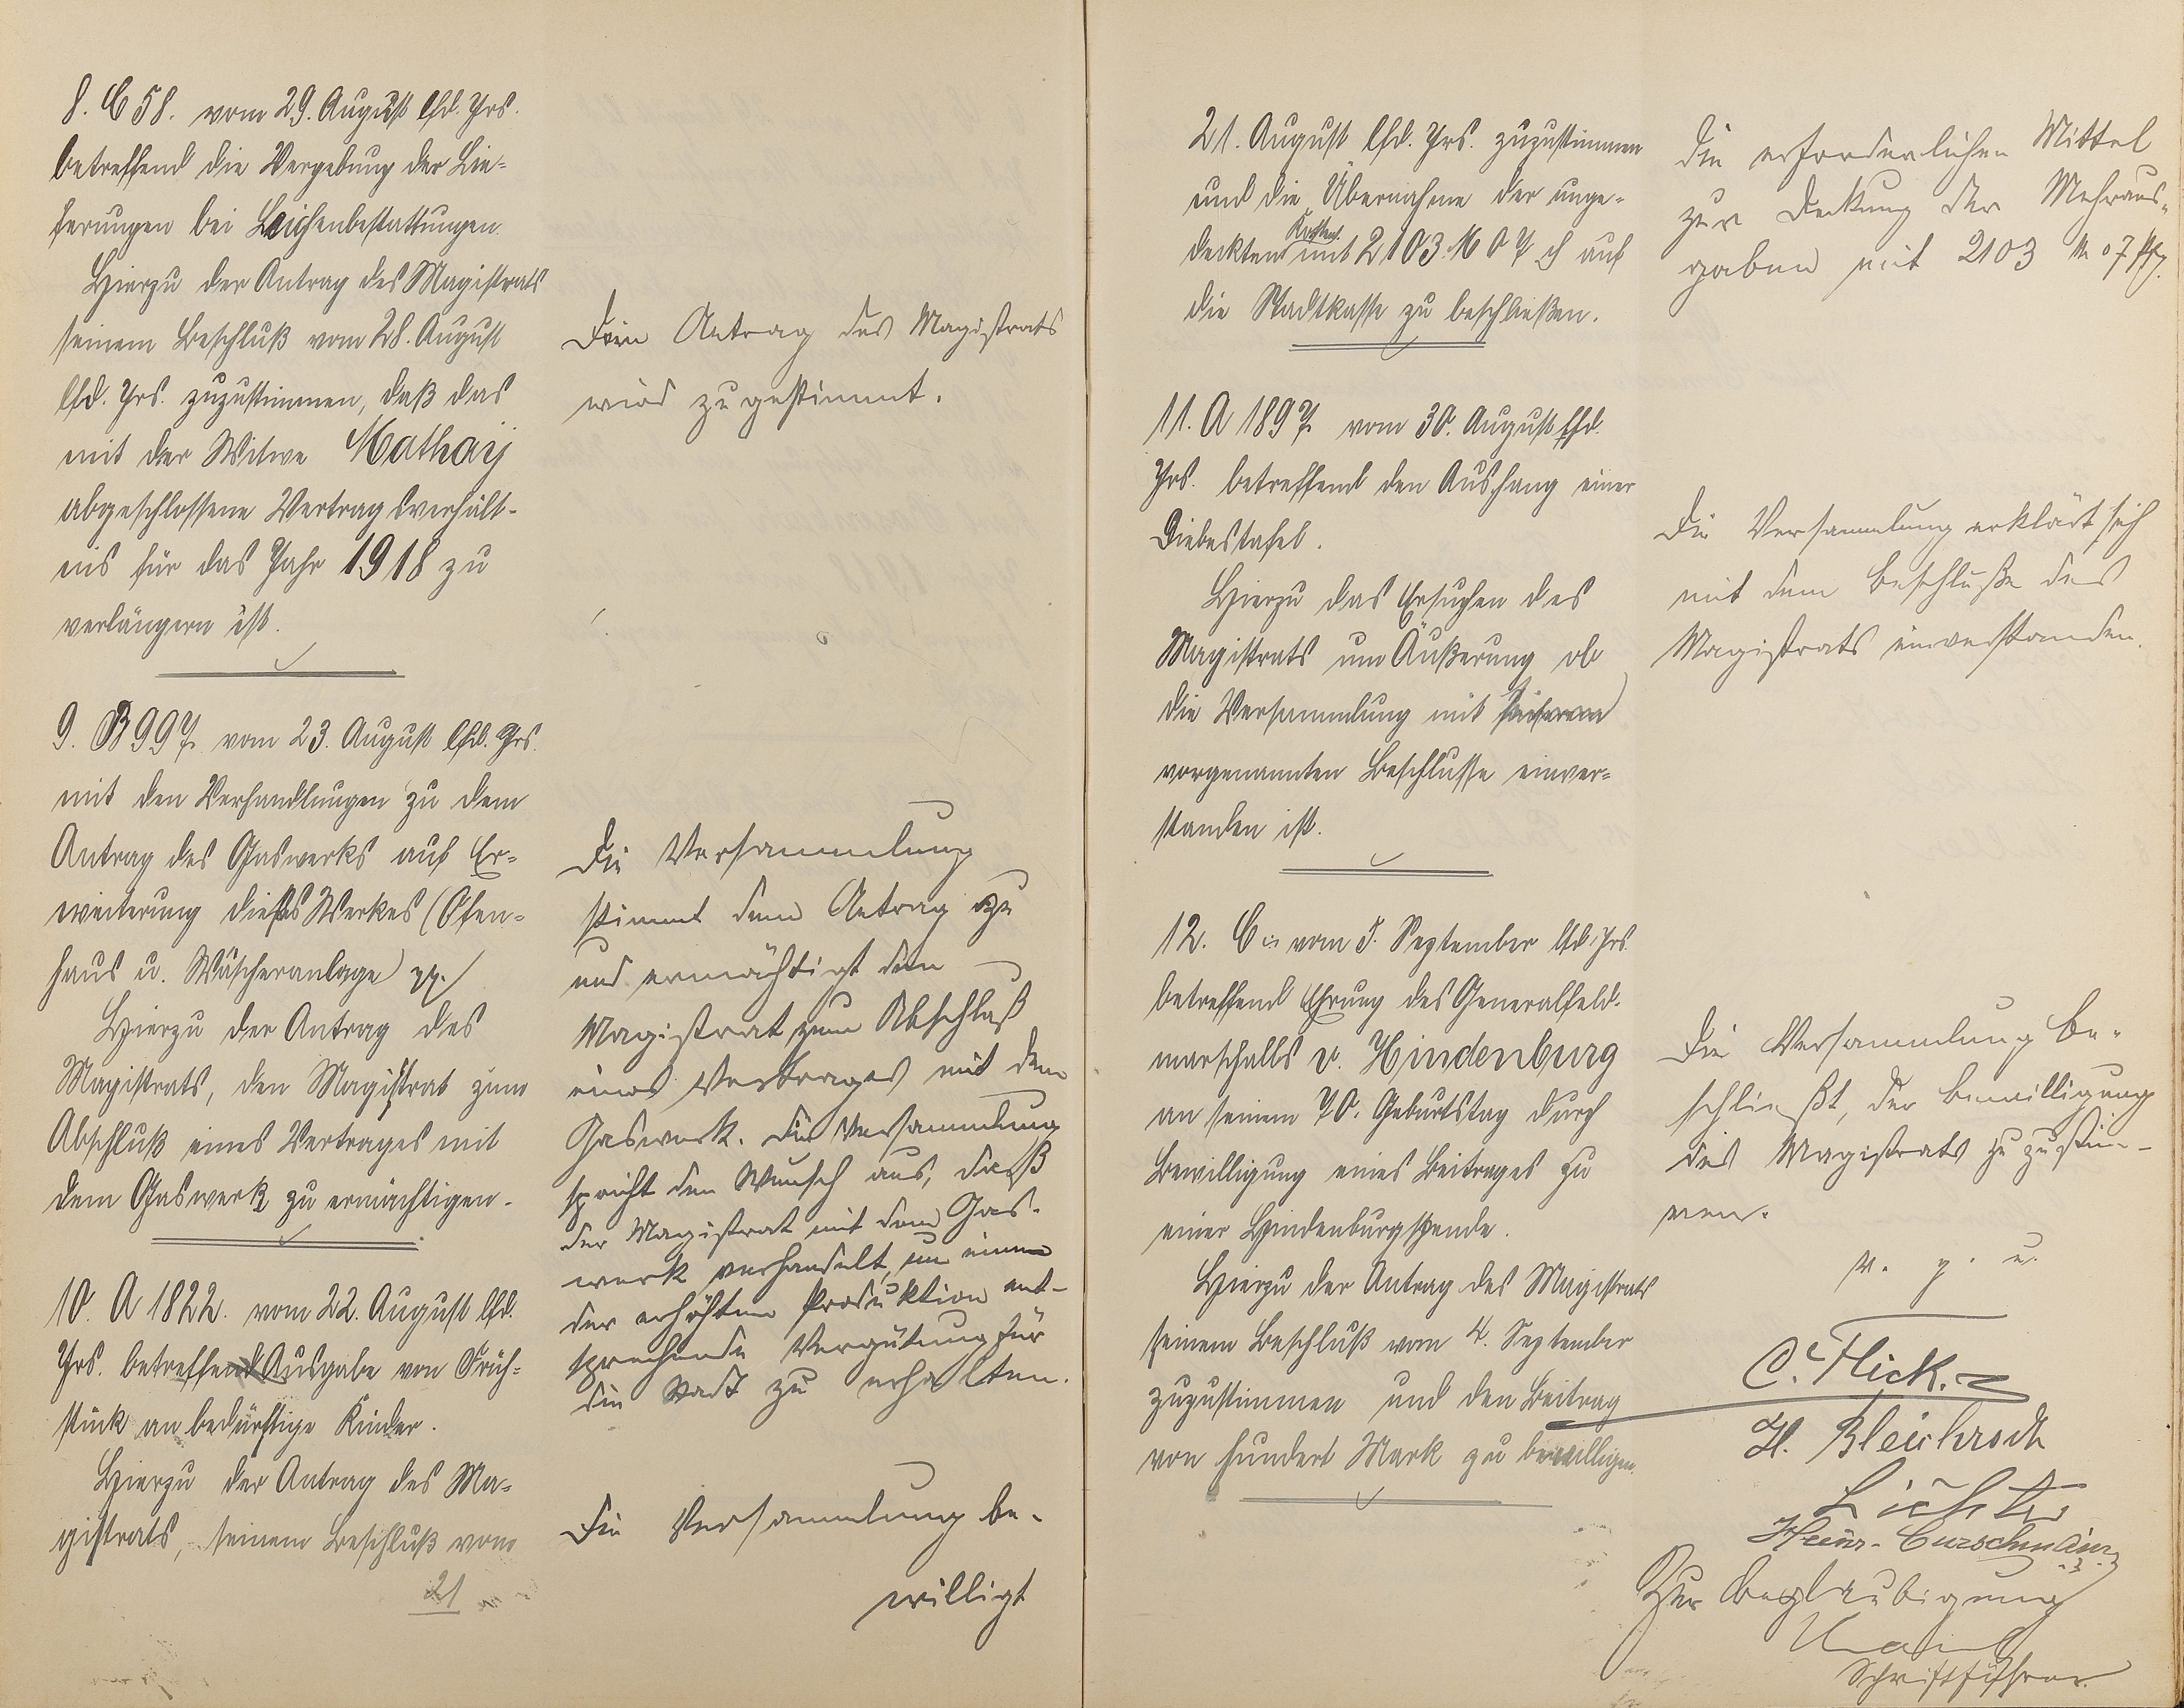 8. C 58. vom 29. August lfd. Jrs.
betreffend die Vergebung der Lie-
ferungen bei Leichenbestattungen.
Hierzu der Antrag des Magistrats
seinem Beschluß vom 28. August
lfd. Jrs. zuzustimmen, daß das
mit der Witwe Mathaij
abgeschlossene Vertragsverhält-
nis für das Jahr 1918 zu
verlängern ist.
Dem Antrag des Magistrats
wird zugestimmt.
9. B 997. vom 23. August lfd. Jrs.
mit den Verhandlungen zu dem
Antrag des Gaswerks auf Er-
weiterung dieses Werkes (Ofen-
haus u. Wäscheranlage) pp./
Hierzu der Antrag des
Magistrats, den Magistrat zum
Abschluß eines Vertrages mit
dem Gaswerk zu ermächtigen.
Die Versammlung
stimmt dem Antrag zu
und ermächtigt den
Magistrat zum Abschluß
eines Vertrages mit dem
Gaswerk. Die Versammlung
spricht den Wunsch aus, daß
der Magistrat mit dem Gas-
werk verhandelt, um eine
der erhöhten Produktion ent-
sprechende Vergütung für
die Stadt zu erhalten.
10. A 1822. vom 22. August lfd.
Jrs. betreffend Ausgabe von Früh-
stück an bedürftige Kinder.
Hierzu der Antrag des Ma-
gistrats, seinem Beschluß vom
21
Die Versammlung be-
willigt
21. August lfd. Jrs. zuzustimmen
und die Übernahme der unge-
deckten Kosten mit 2103 M 07 auf
die Stadtkasse zu beschließen.
die erforderlichen Mittel
zur Deckung der Mehraus-
gaben mit 2103 M 07 Pfg.
11. A 1897. vom 30. August lfd.
Jrs. betreffend den Aushang einer
Diebestafel.
Hierzu das Ersuchen des
Magistrats um Äußerung ob
die Versammlung mit
vorgenannten Beschlusse einver-
standen ist.
Die Versammlung erklärt sich
mit dem Beschluße des
Magistrats einverstanden.
12. C vom 5. September lfd. Jrs.
betreffend Ehrung des Generalfeld-
marschalls v. Hindenburg
an seinem 70. Geburtstag durch
Bewilligung eines Beitrages zu
einer Hindenburgspende.
Hierzu der Antrag des Magistrats
seinem Beschluß vom 4. September
zuzustimmen und den Beitrag
von hundert Mark zu bewilligen.
Die Versammlung be-
schließt, der Bewilligung
des Magistrats zuzustim-
men.
v. g. u.
C. Flick.
H. Bleichrodt
Lichte
Heinr. Curschmann
Zur Beglaubigung
Schriftführer.